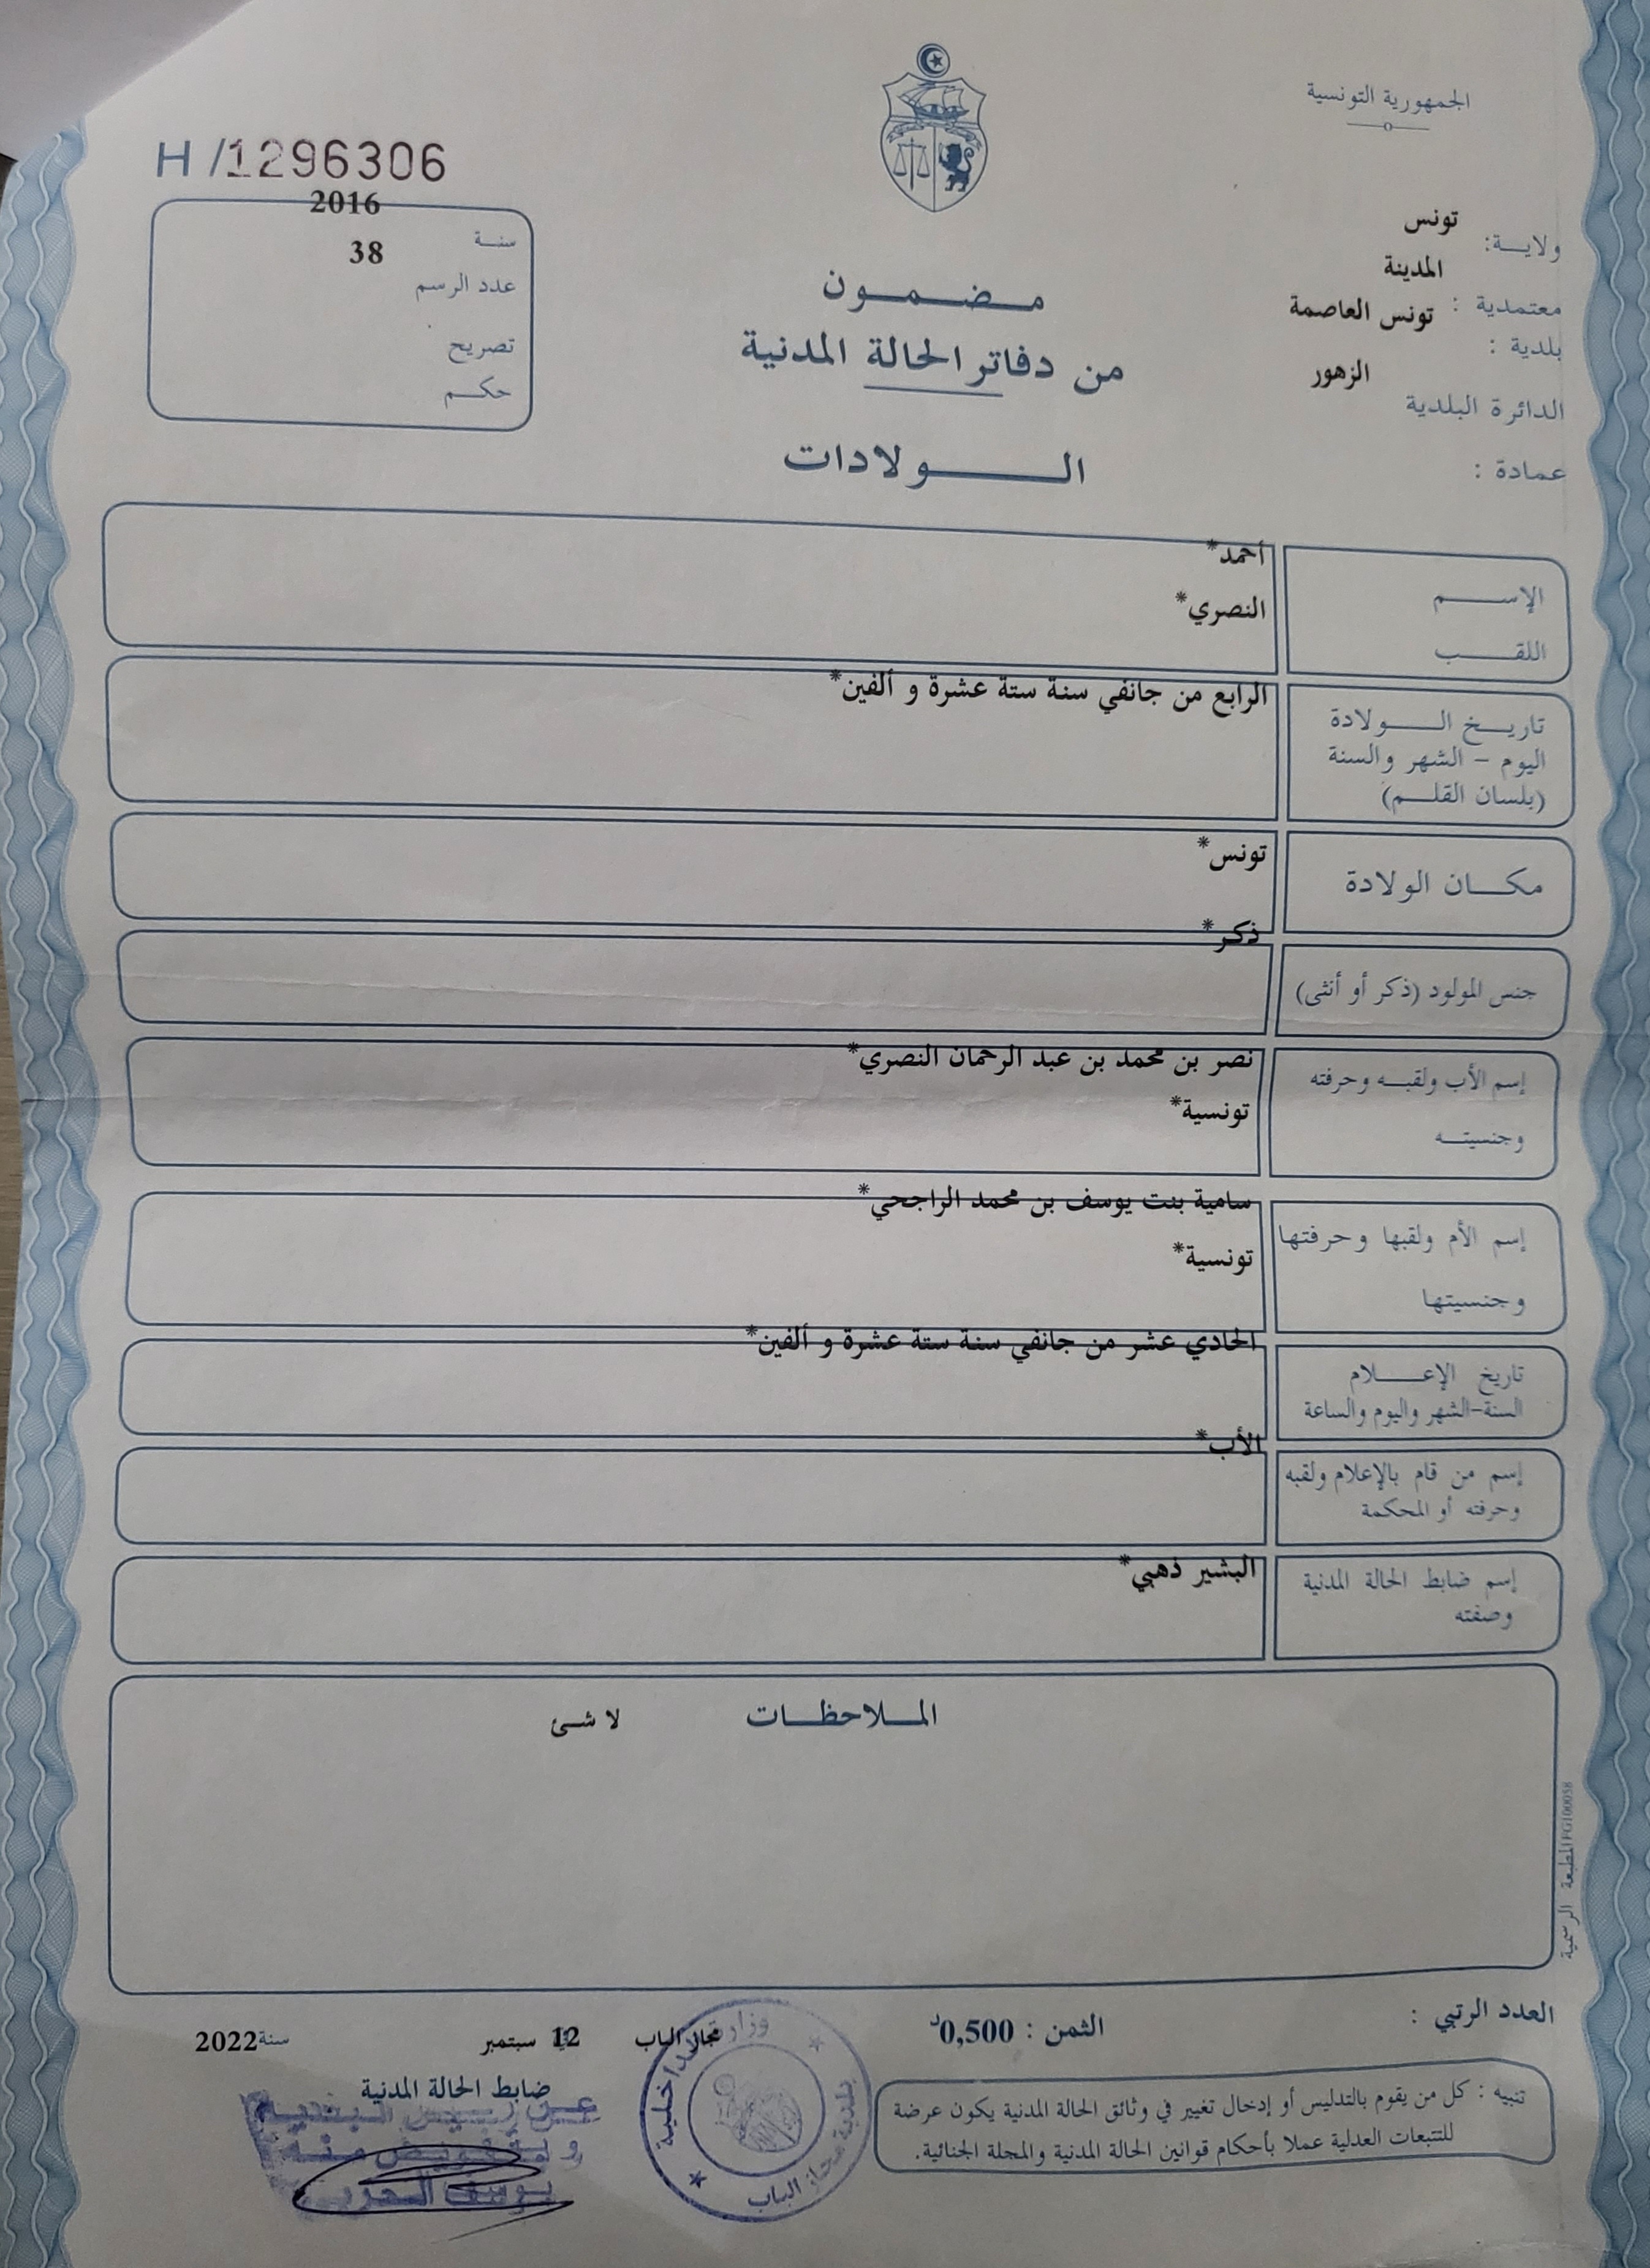 الجمهورية التونسية
H /1296306
ولايـــة: تونس
المدينة
معتمدية :
تونس العاصمة
بلدية :
الزهور
الدائرة البلدية
عمادة :
2016
سنـة
38
عدد الرسم
تصريح
حكـم
مـــضــمــــون
من دفاتر الحالة المدنية
الـــــــولادات
الإســـــم
أحمد*
اللقـــــب
النصري*
تاريـــخ الـــــولادة
اليوم - الشهر والسنة
(بلسان القلــم)
الرابع من جانفي سنة ستة عشرة و ألفين*
مكـــان الولادة
تونس*
جنس المولود (ذكر أو أنثى)
ذكر*
إسم الأب ولقبـــه وحرفته
نصر بن محمد بن عبد الرحمان النصري*
وجنسيتـــه
تونسية*
إسم الأم ولقبها وحرفتها
سامية بنت يوسف بن محمد الراجحي*
وجنسيتها
تونسية*
تاريخ الإعـــــلام
السنة-الشهر واليوم والساعة
الحادي عشر من جانفي سنة ستة عشرة و ألفين*
إسم من قام بالإعلام ولقبه
وحرفته أو المحكمة
الأب*
إسم ضابط الحالة المدنية
وصفته
البشير ذهبي*
المــلاحظـــات
لا شئ
المطبعة الرسمية FG100058
العدد الرتبي :
الثمن : 0,500د
مجاز الباب
12 سبتمبر
سنة 2022
ضابط الحالة المدنية
عن رئيس البلدية
وبتفويض منه
يوسف المحرر
وزارة الداخلية
بلدية مجاز الباب
تنبيه : كل من يقوم بالتدليس أو إدخال تغيير في وثائق الحالة المدنية يكون عرضة
للتتبعات العدلية عملا بأحكام قوانين الحالة المدنية والمجلة الجنائية.